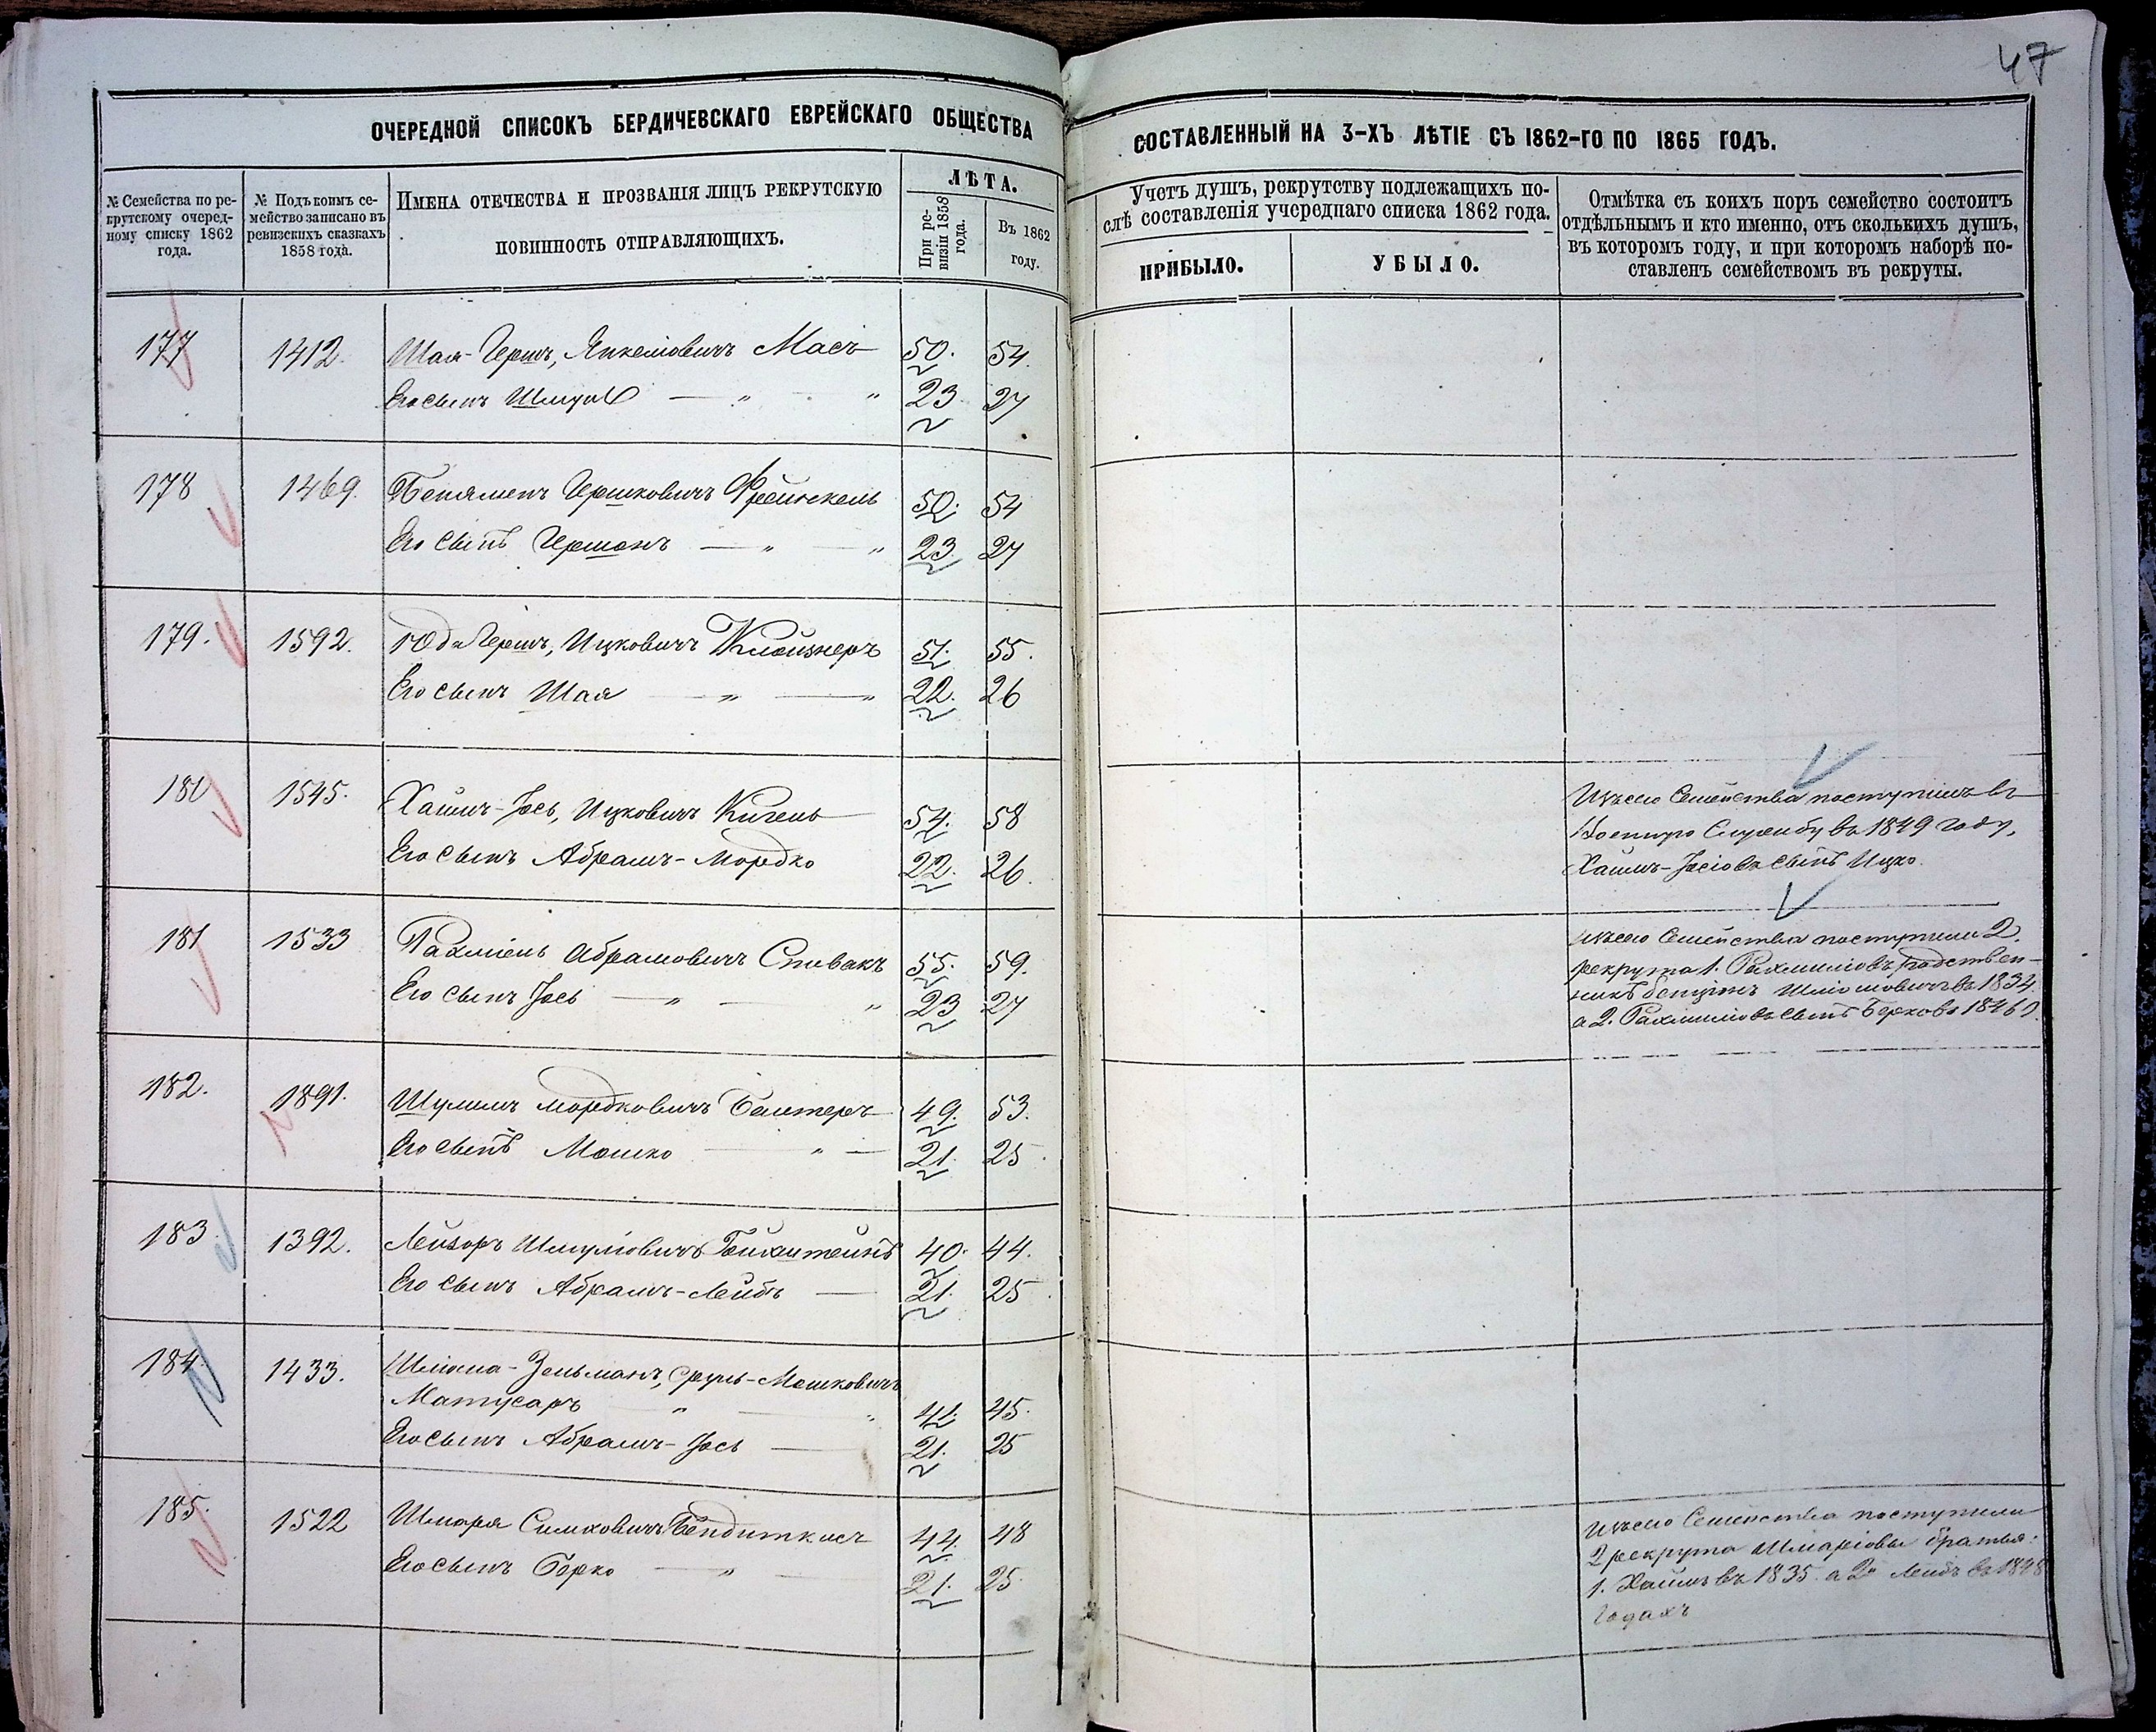 47
ОЧЕРЕДНОЙ СПИСОКЪ БЕРДИЧЕВСКАГО ЕВРЕЙСКАГО ОБЩЕСТВА
СОСТАВЛЕННЫЙ НА 3-ХЪ ЛѢТІЕ СЪ 1862-ГО ПО 1865 ГОДЪ.
№ Семейства по ре-
крутскому очеред-
ному списку 1862
года.
№ Подъ коимъ се-
мейство записано въ
ревизскихъ сказкахъ
1858 года.
ИМЕНА ОТЕЧЕСТВА И ПРОЗВАНІЯ ЛИЦЪ РЕКРУТСКУЮ
ПОВИННОСТЬ ОТПРАВЛЯЮЩИХЪ.
ЛѢТА.
При ре-
визіи 1858
года.
Въ 1862
году.
Учетъ душъ, рекрутству подлежащихъ по-
слѣ составленія учереднаго списка 1862 года.
ПРИБЫЛО.
УБЫЛО.
Отмѣтка съ коихъ поръ семейство состоитъ
отдѣльнымъ и кто именно, отъ сколькихъ душъ,
въ котором​ъ году, и при которомъ наборѣ по-
ставленъ семействомъ въ рекруты.
177 1412. Шая-Гершъ, Янкелiовичъ Масъ 50. 54.
Его сынъ Шмуль — „ — „ 23 27
178 1469. Беняменъ Гершковичъ Френкель 50. 54
Его сынъ Гершонъ — „ — „ 23. 27
179. 1592. Юда Гершъ, Ицковичъ Клейзнеръ 51. 55.
Его сынъ Шая — „ — „ 22. 26
180 1545. Хаимъ-Іось, Ицковичъ Кигель 54. 58
Его сынъ Абрамъ-Мордко 22. 26.
Изъ сего Семейства поступилъ въ
Военную Службу въ 1849 году,
Хаимъ-Іосіовъ сынъ Ицко.
181 1533 Рахміель Абрамовичъ Спивакъ 55. 59.
Его сынъ Іось — „ — „ 23 27
Изъ сего Семейства поступили 2.
рекрута 1. Рахмиліовъ родствен-
никъ Шліомовичъ въ 1834.
а 2. Рахмиліовъ сынъ Берко въ 1846
182. 1891. Шулимъ Мордковичъ 49. 53.
Его сынъ Мошко — „ — 21. 25.
183. 1392. Лейзоръ Шмуліовичъ Гольхштейнъ 40. 44.
Его сынъ Абрамъ-Лейбъ — 21. 25.
184. 1433. Шліома-Зельманъ, Сруль-Мошковичъ
Матусаръ „ — „ 41. 45.
Его сынъ Абрамъ-Іось — 21. 25
185. 1522 Шмаря Симховичъ Бендиткисъ 44. 48
Его сынъ Берко — „ — 21. 25.
Изъ сего Семейства поступили
2 рекрута Шмаріовы братья:
1. Хаимъ въ 1835. а 2й Лейбъ въ 1848
годахъ